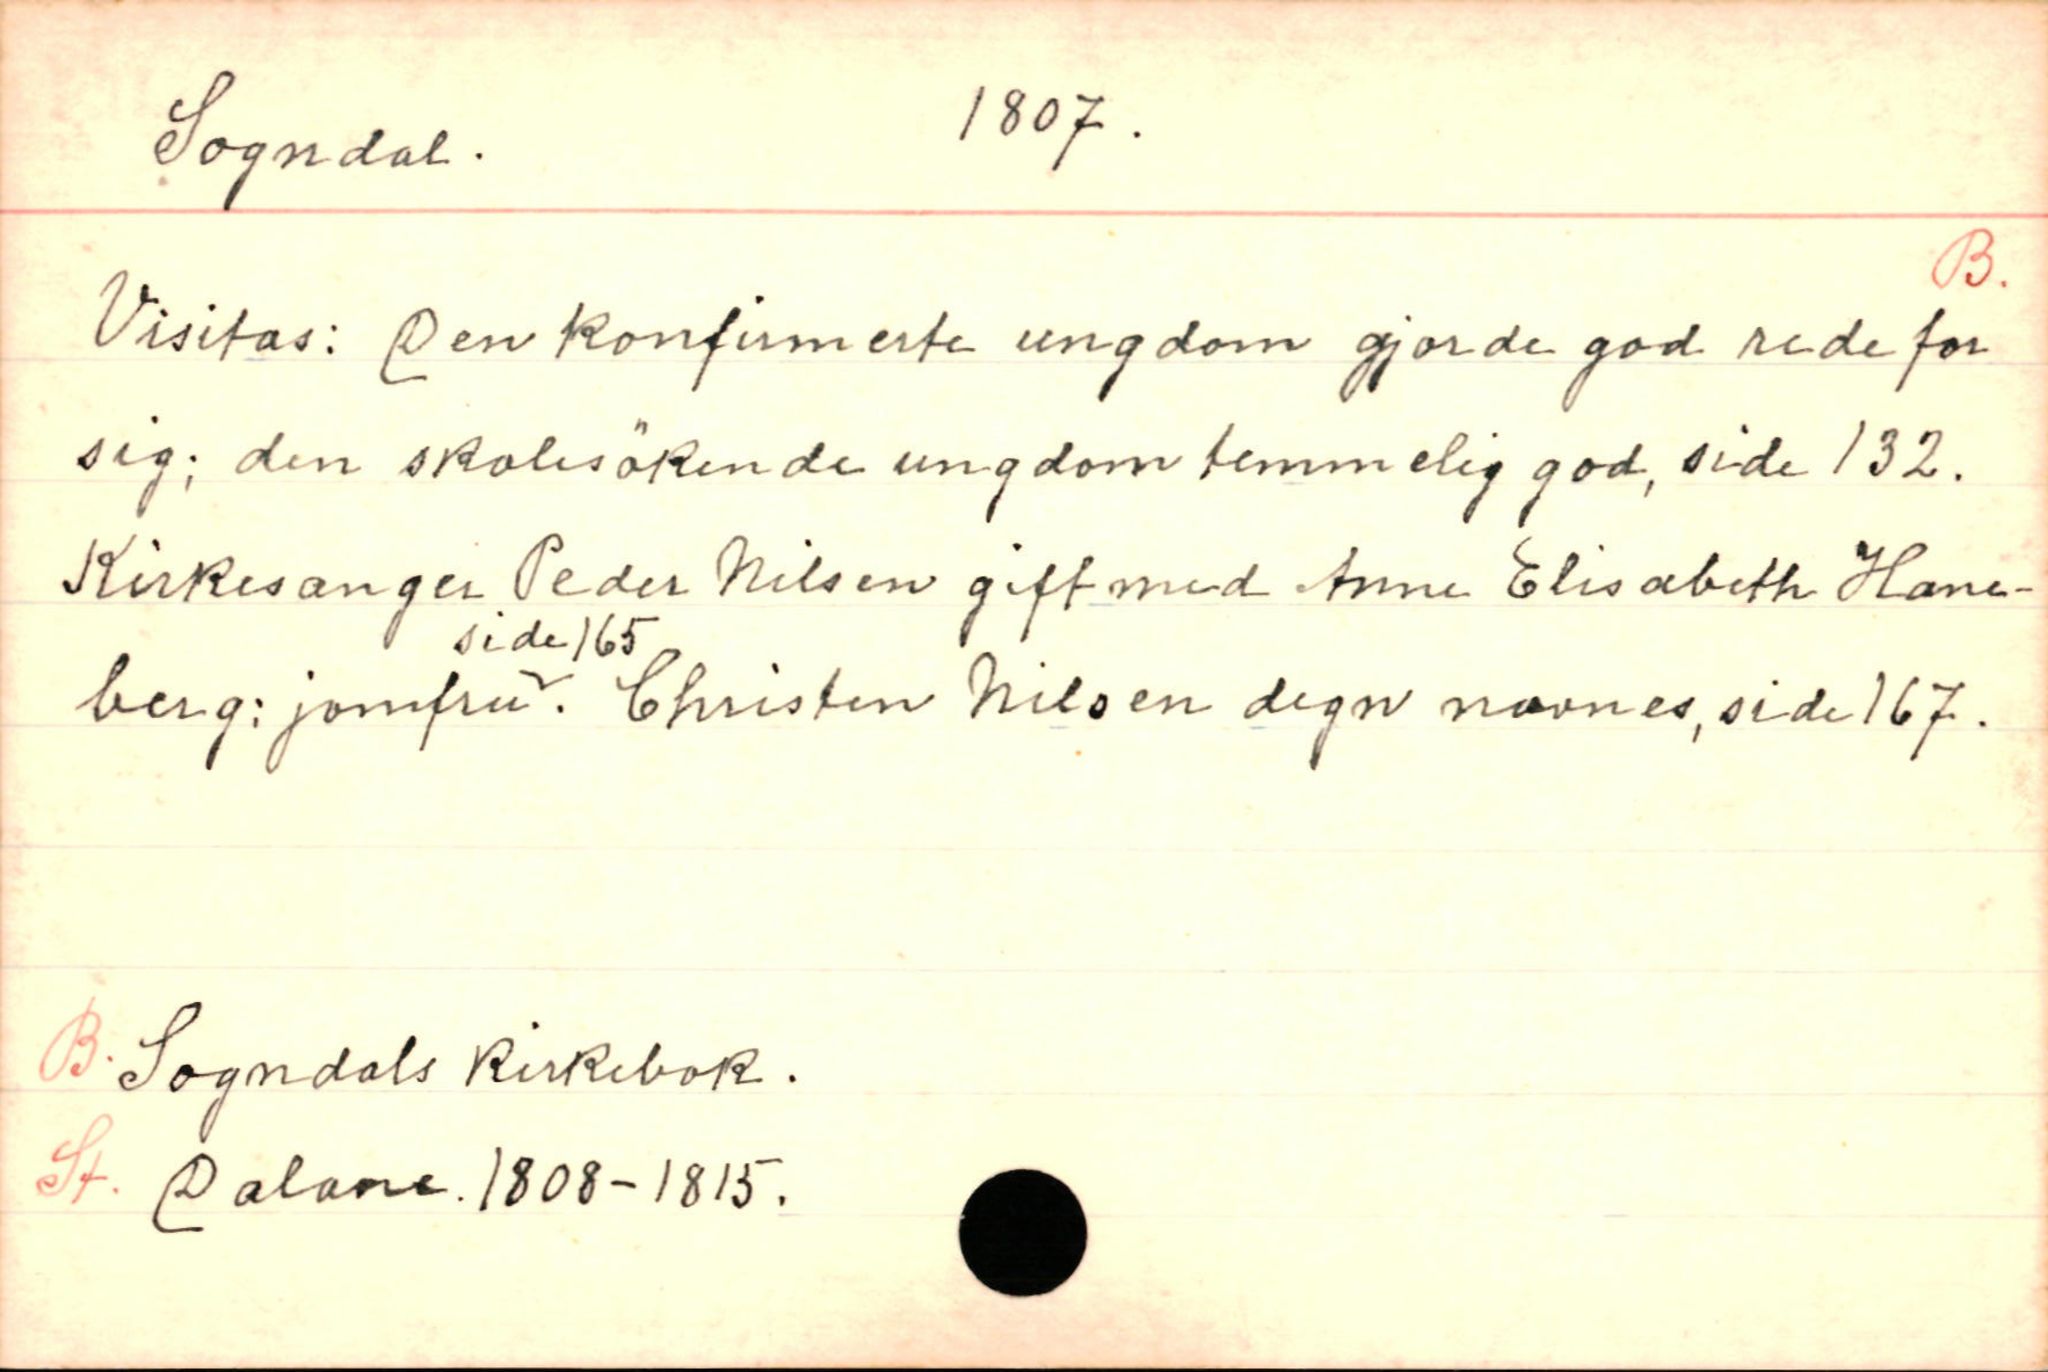 Sogndal. 1807.
B.
Visitas: Den konfirmerte ungdom gjorde god rede for
sig; den skolesökende ungdom temmelig god, side 132.
Kirkesanger Peder Nilsen gift med Anne Elisabeth Hane-
side 165
berg: jomfru. Christen Nilsen degn navnes, side 167.
B. Sogndals Kirkebok.
St. Dalane. 1808-1815.